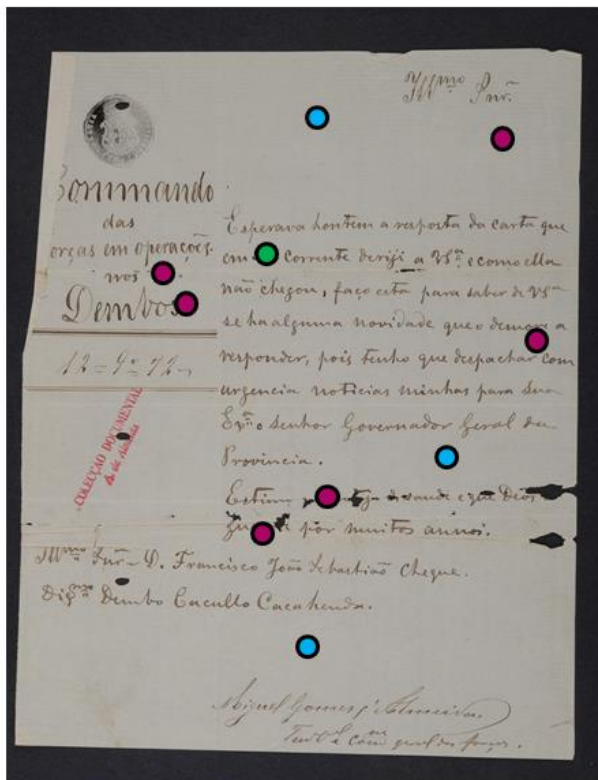 Illmo Snr.
Commando
das
orças em operações
nos
Dembos
12=9º=72
COLECÇÃO DOCUMENTAL
Esperava hontem a resposta da carta que
em corrente derigi a VSª. e como ella
não chegou, faço esta para saber de VSª
se ha alguma novidade que o demore a
responder, pois tenho que despachar com
urgencia noticias minhas para Sua
Exmo Senhor Governador Geral da
Provincia.
Estimo saude e que Deos
por muitos annos.
Illmo Snr. D. Francisco João Sebastião Cheque.
Dembo Caculto Cacahenda.
Miguel Gomes d'Almeida